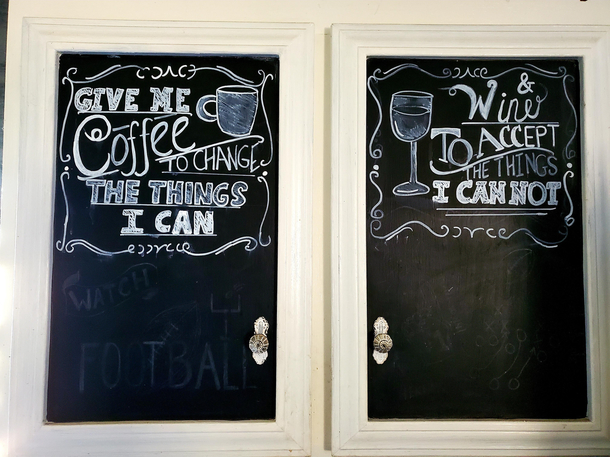 GIVE ME
Coffee
TO CHANGE
THE THINGS
I CAN
WATCH
FOOTBALL
&
Wine
TO ACCEPT
THE THINGS
I CAN NOT